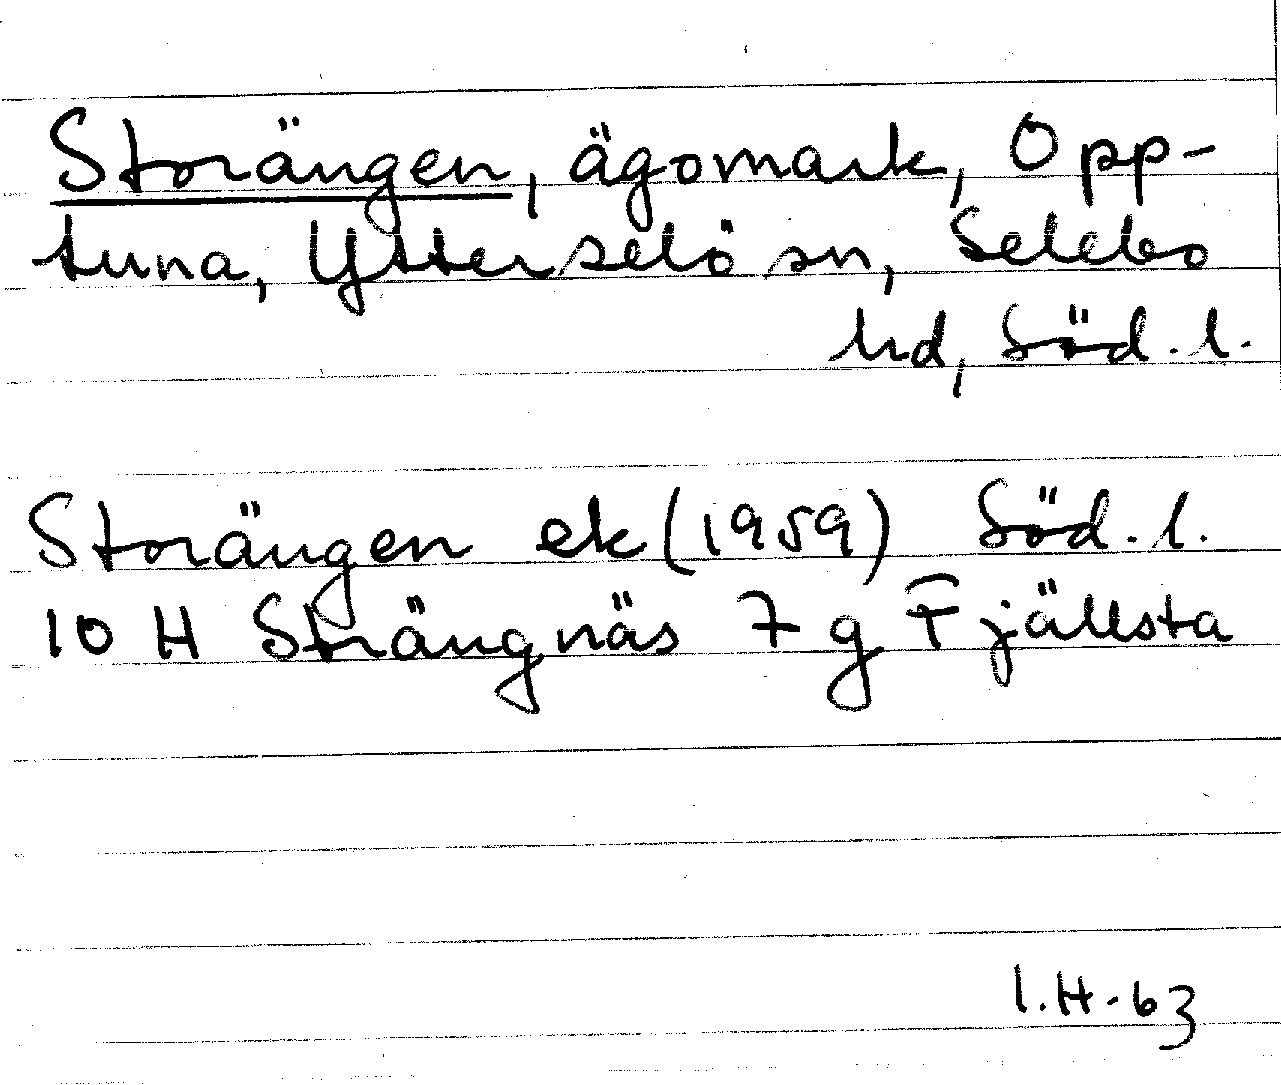 Storängen, ägomark, Opp-
tuna, Ytterselö sn, Selebo
hd, Söd. l.
Storängen ek (1959) Söd. l.
10 H Strängnäs 7 g Fjällsta
I.H-63